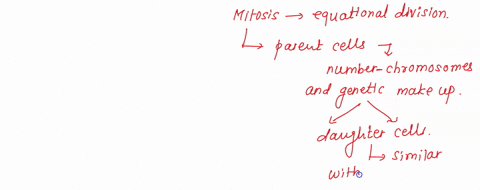 Mitosis → equational division.
↳ parent cells ↴
number-chromosomes
and genetic make up.
daughter cells.
↳ similar
with